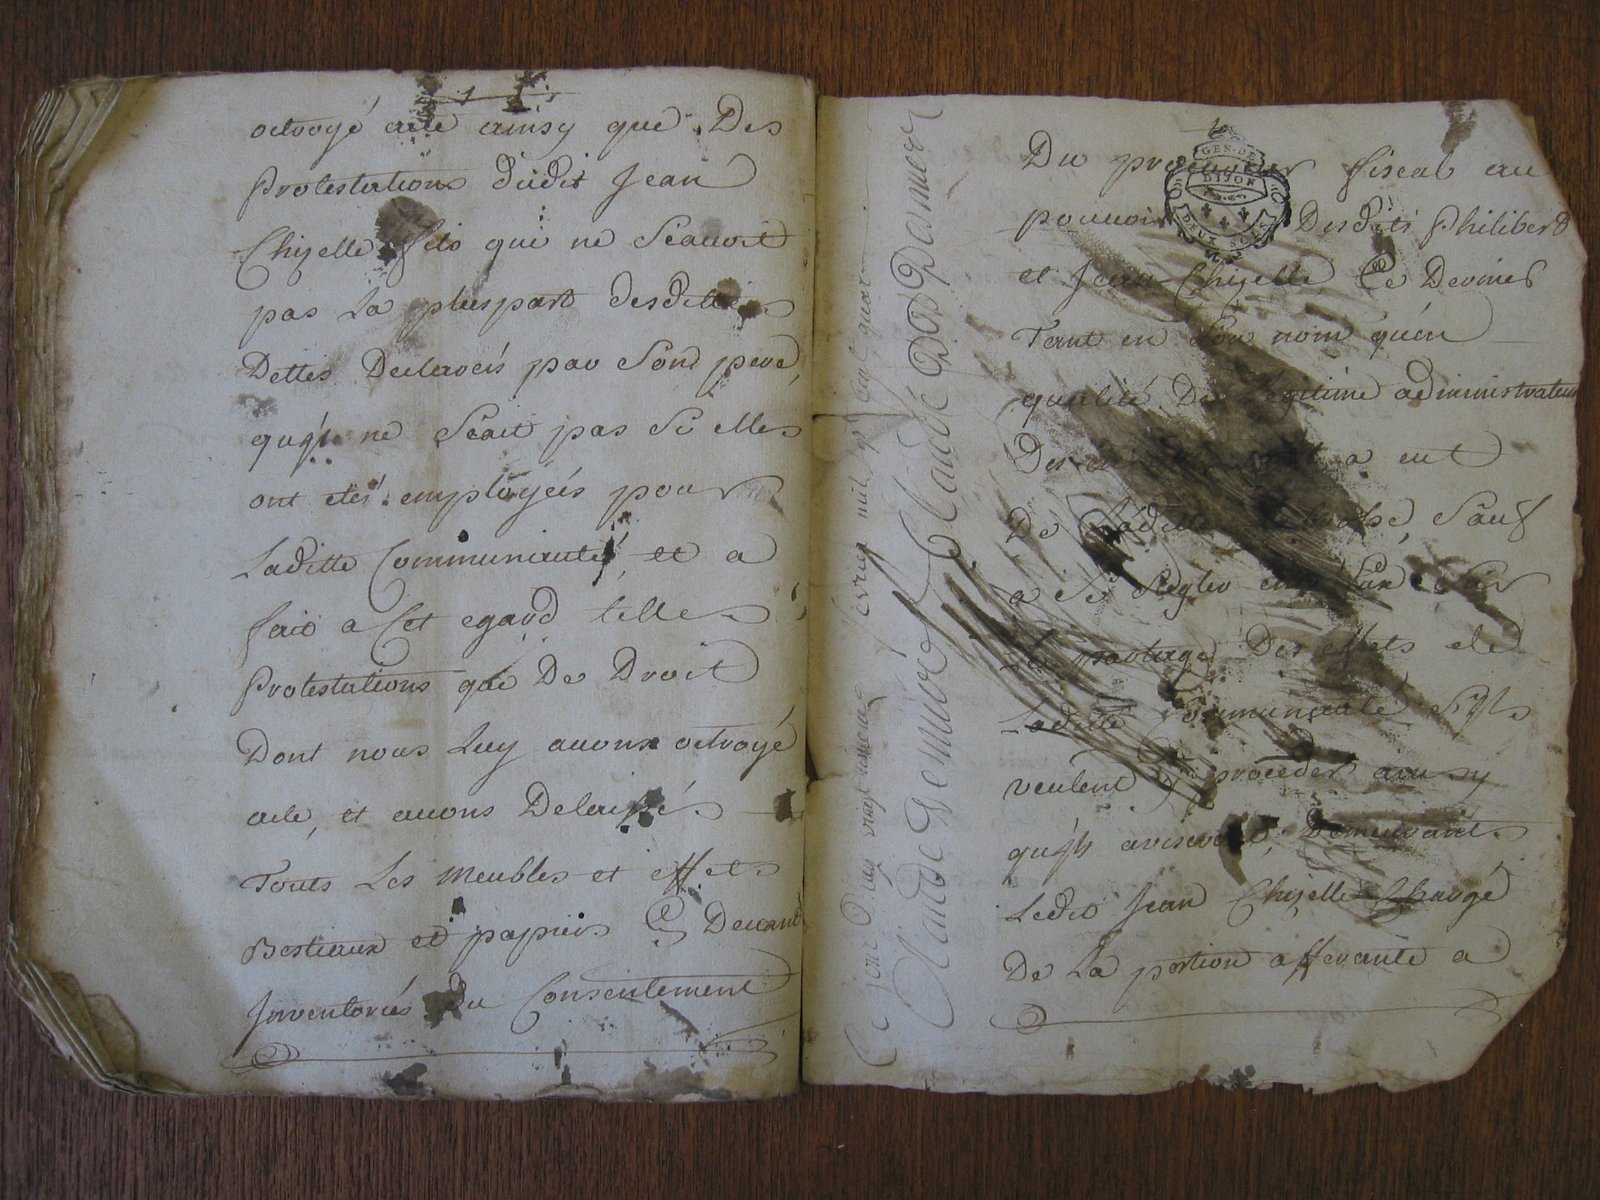 octroyé acte ainsy que Des
Protestations dudit Jean
Chizelle fils qui ne Scauoit
pas La pluspart desdittes
Dettes Declareés par Son pere,
qu'il ne Scait pas Si elles
ont eteś employeés pour
Laditte Communauté, et a
fait a Cet egard telles
Protestations que De Droit
Dont nous Luy auons octroyé
acte, et auons Delaissés
Touts Les Meubles et effets
Bestiaux et papiers Cy Deuant
Inventoriés du Consentement
Claude Claude
Du procureur fiscal au
GEN. DE
DIJON
DEUX SOLS
pouuoir Desdits Philibert
et Jean Chizelle, Ce Dernier
Tant en Son nom qu'en
qualité De Legitime administrateur
Des a eut
De Laditte Sauf
a Se Regler entre Eux Sur
Le partage Des effets de
Laditte Communauté S'ils
veulent y proceder ainsy
qu'ils aviseront, Demeurant
Ledit Jean Chizelle Chargé
De La portion afferante a